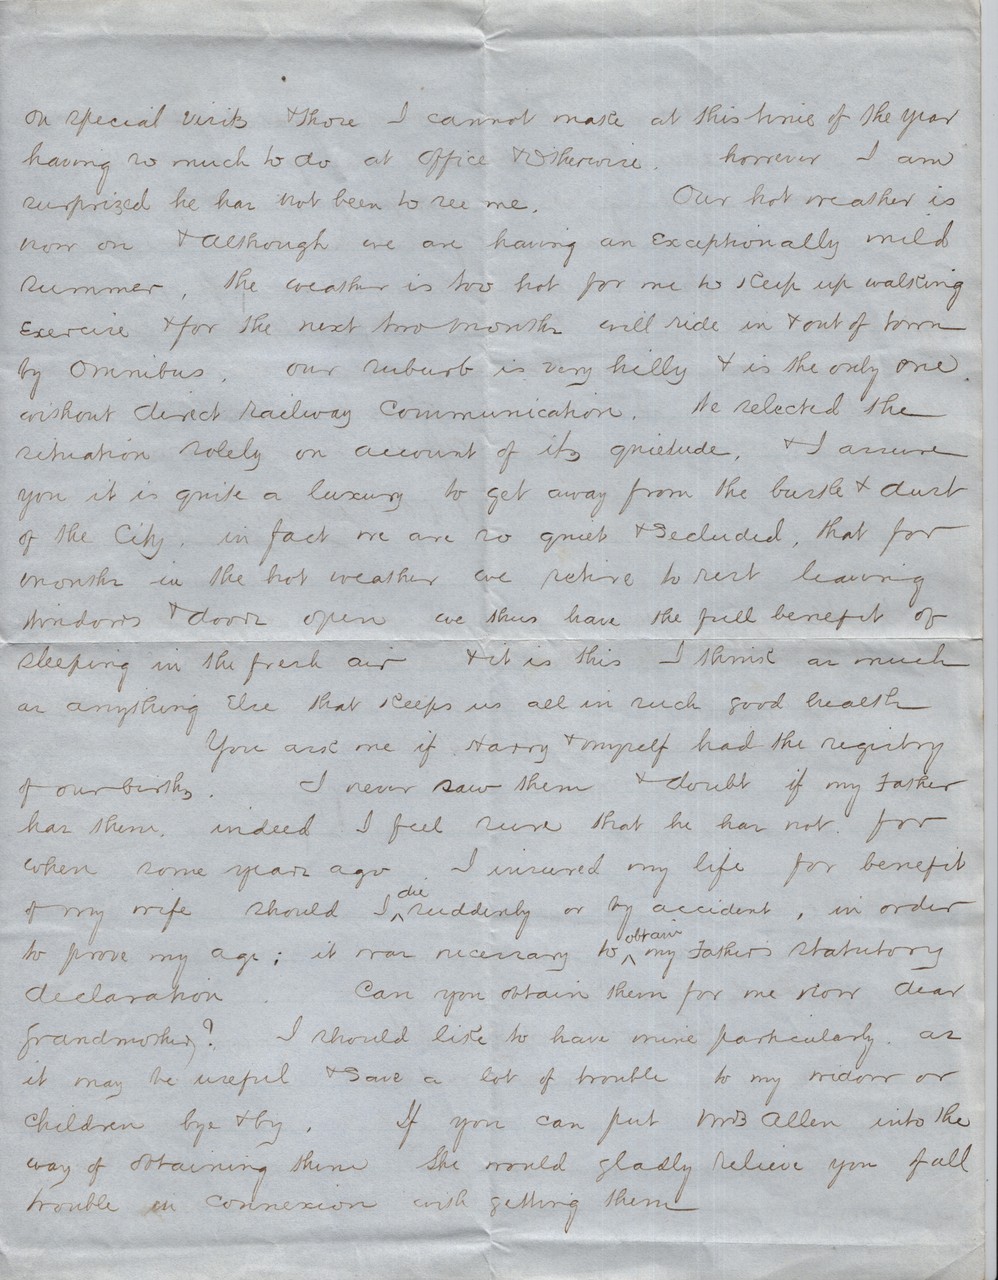 on special visits & those I cannot make at this time of the year
having so much to do at office & otherwise. however I am
surprized he has not been to see me. Our hot weather is
now on & although we are having an exceptionally mild
summer, the weather is too hot for me to keep up walking
Exercise & for the next two months will ride in & out of town
by Omnibus. our suburb is very hilly & is the only one
without direct railway communication. We selected the
situation solely on account of its quietude, & I assure
you it is quite a luxury to get away from the bustle & dust
of the City. in fact we are so quiet & secluded, that for
months in the hot weather we retire to rest leaving
windows & doors open we thus have the full benefit of
sleeping in the fresh air & it is this I think as much
as anything Else that keeps us all in such good health
You ask me if Harry & myself had the registry
of our births. I never saw them & doubt if my Father
has them. indeed I feel sure that he has not. for
when some years ago I insured my life for benefit
of my wife should I die suddenly or by accident, in order
to prove my age; it was necessary to obtain my Father's statutory
declaration. Can you obtain them for me now dear
Grandmother? I should like to have mine particularly. as
it may be useful & save a lot of trouble to my widow or
children bye & by. If you can put Mrs Allen into the
way of obtaining them she would gladly relieve you of all
trouble in connexion with getting them